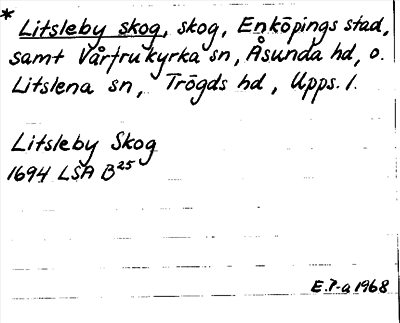 * Litsleby skog, skog, Enköpings stad,
samt Vårfrukyrka sn, Åsunda hd, o.
Litslena sn, Trögds hd, Upps. l.
Litsleby Skog
1694 LSA B25
E.P-a 1968